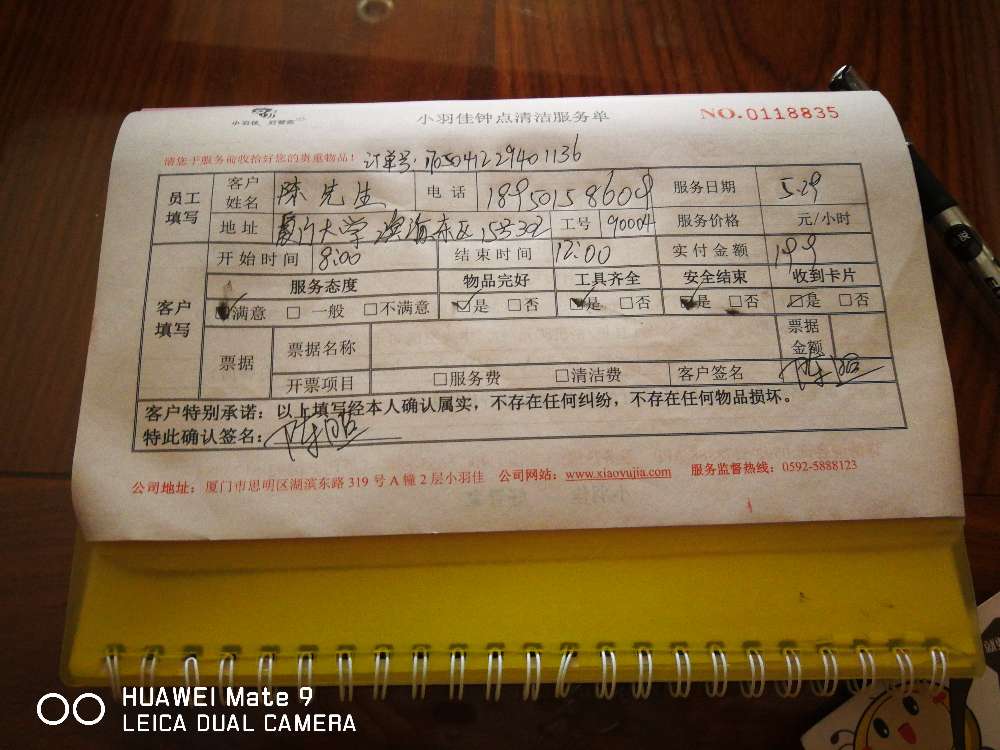 小羽佳 好管家
小羽佳钟点清洁服务单
NO.0118835
请您于服务前收拾好您的贵重物品!
订单号:
员工填写
客户姓名 陈先生 电话 18950158609 服务日期 5.29
地址 厦门大学滨海东区 工号 90004 服务价格 元/小时
客户填写
开始时间 8:00 结束时间 12:00 实付金额 199
服务态度 物品完好 工具齐全 安全结束 收到卡片
☑满意 □ 一般 □不满意 ☑是 □否 ☑是 □否 ☑是 □否 ☑是 □否
票据 票据名称 票据金额
开票项目 □服务费 □清洁费 客户签名
客户特别承诺:以上填写经本人确认属实,不存在任何纠纷,不存在任何物品损坏。
特此确认签名:
公司地址:厦门市思明区湖滨东路 319 号 A 幢 2 层小羽佳 公司网站:www.xiaoyujia.com 服务监督热线:0592-5888123
HUAWEI Mate 9
LEICA DUAL CAMERA